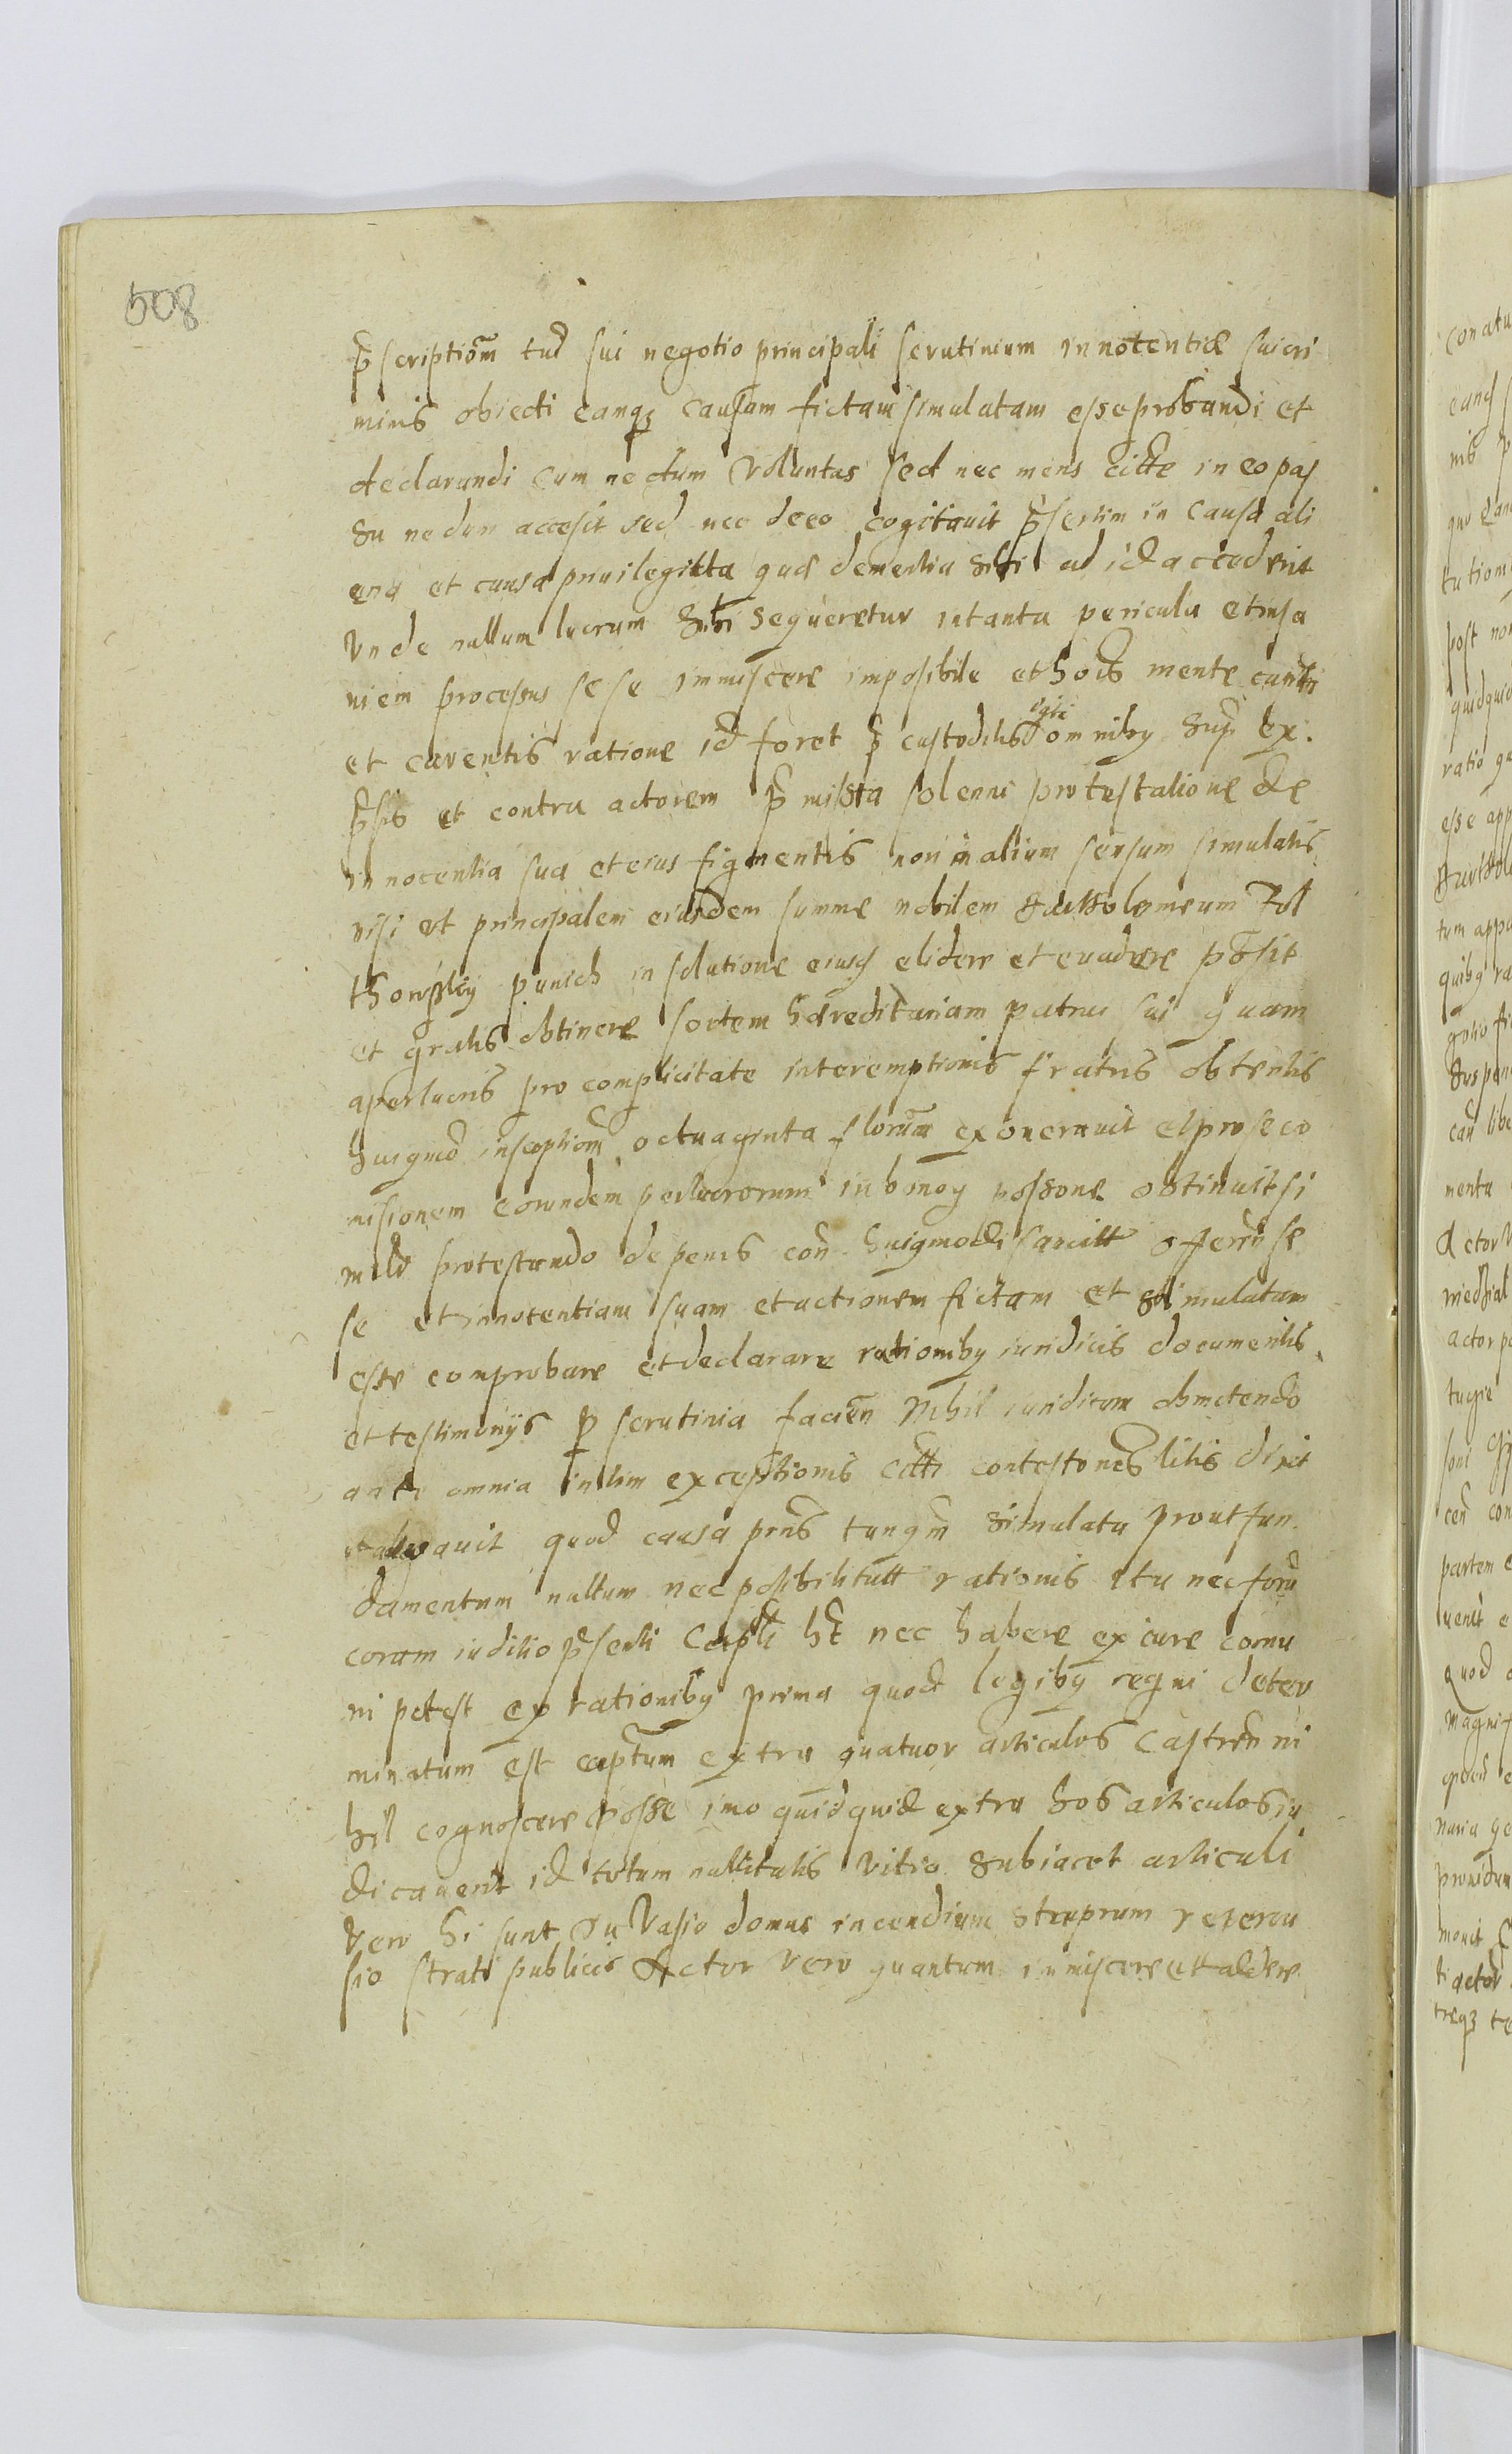 508
p̃scriptiõm tũ sui negotio principali scrutinium innotentiæ sui cri
minis obiecti eamqȝ causam fictam simulatam esse probandi et
declarandi cum nedum voluntas sed nec mens citte in eo pas
su nedum accesit sed nec deeo cogitauit p̃sertim in causa ali
ena et causa priuilegitta quæ dementia sibi ad id accederit
vnde nullum lucrum sibi sequeretur in tanta pericula et insa
niem processus se se immiscere imposibile et hois mente
et carentis ratione id foret p̃ custoditis igit omnibȝ sup ex.
p̃sis et contra actorem p̃missa solenni protestatione de
innocentia sua et eius figmentis non in alium sensum simulatis
nisi et principalem eiusdem summe nobilem Bartholomeum Pol
punich in solutione eiusq elidere et euadere posit
et gratis obtinere sortem hæreditariam patrui sui quam
aperlucris pro complicitate interemptionis fratris obtentis
huiqmõ inscoptiõm octuaginta florum exonerauit et pro se co
nisionem eorundem perlucrorum in bonoȝ possone obtinuit si
mile protestando de penis con huigmodi sarcitt offerri se
se et innotentiam suam et actionem fictam et simulatam
esse comprobare et declarare rationibȝ iuridicis documentis
et testimonijs p scrutinia facien Nihil iuridicum obmetendo
ante omnia in vim exceptionis citti contestonẽs litis dixit
et allegauit quod causa prns tanqm simulata prout fun
damentum nullum nec posibilitatt rationis ita nec forũ
coram iuditio p̃senti Captli ht nec habere ex iure comu
ni potest ex rationibȝ prima quod legibȝ regni deter
minatum est captum extra quatuor articulos Castren ni
hil cognoscere posse imo quidquid extra hos articulos iu
dicauerit id totum nullitatis vitio subiacet articuli
vero hi sunt Inuasio domus incendium stuprum recercu
sio strate publicis Actor vero quantum inmiscere et addere